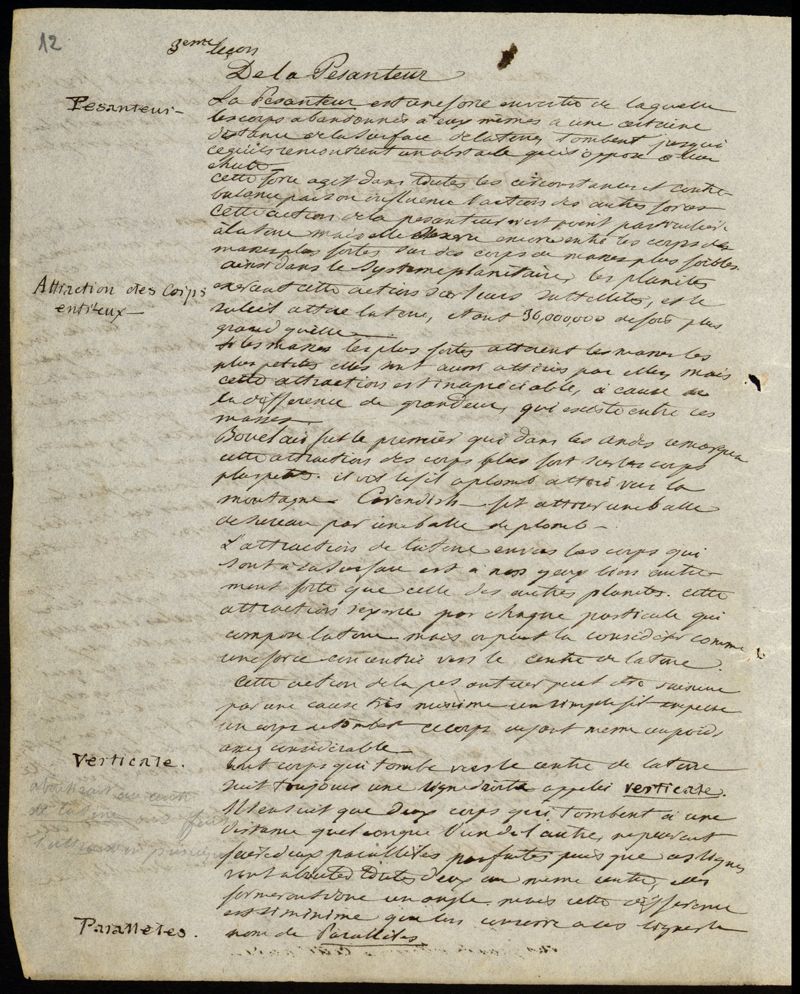 12
3eme leçon
De la Pesanteur
Pesanteur -
La Pesanteur est une force en vertu de laquelle
les corps abandonnés à eux mêmes a une certaine
distance de la surface de la terre, tombent jusqu'à
ce qu'ils rencontrent un obstacle qui s'oppose a leur
chute.
Cette force agit dans toutes les circonstances et contre
balance par son influence l'action des autres forces
Cette action de la pesanteur n'est point particulière
à la terre mais elle s'exerce encore entre les corps de
masses plus fortes, sur des corps de masses plus foibles.
Attraction des Corps
entr'eux -
ainsi dans le Systeme planitaire, les planètes
exercent cette action sur leurs sattelites, et le
soleil attire la terre, étant 36,000,000 de fois plus
grand qu'elle -
Si les masses les plus fortes attirent les masses les
plus petites elles sont aussi attirées par elles, mais
cette attraction est inapréciable, à cause de
la difference de grandeur, qui existe entre ces
masses
Bouclair fut le premier qui dans les andes remarqua
cette attraction des corps plus fort sur les corps
plus petits. il vit le fil a plomb attiré vers la
montagne. Cavendish fit attirer une balle
de sureau par une balle de plomb -
L'attraction de la terre envers les corps qui
sont à sa surface est à nos yeux bien autre-
ment forte que celle des autres planètes. cette
attraction s'exerce par chaque particule qui
compose la terre mais on peut la considérer comme
une force concentrée vers le centre de la terre.
Cette action de la pesanteur peut être vaincue
par une cause très minime un simple fil empeche
un corps de tomber ce corps
assez considérable -
Verticale.
tout corps qui tombe vers le centre de la terre
suit toujours une ligne droite appelée verticale.
aboutirait au centre
de la terre
Il s'ensuit que deux corps qui tombent à une
distance quelconque l'un de l'autre, ne peuvent
faire deux parallèles parfaites puis que ces lignes
vont aboutir toutes deux au même centre, elles
formeront donc un angle mais cette difference
est si minime que l'on conserve a ces lignes le
Paralleles.
nom de Parallèles